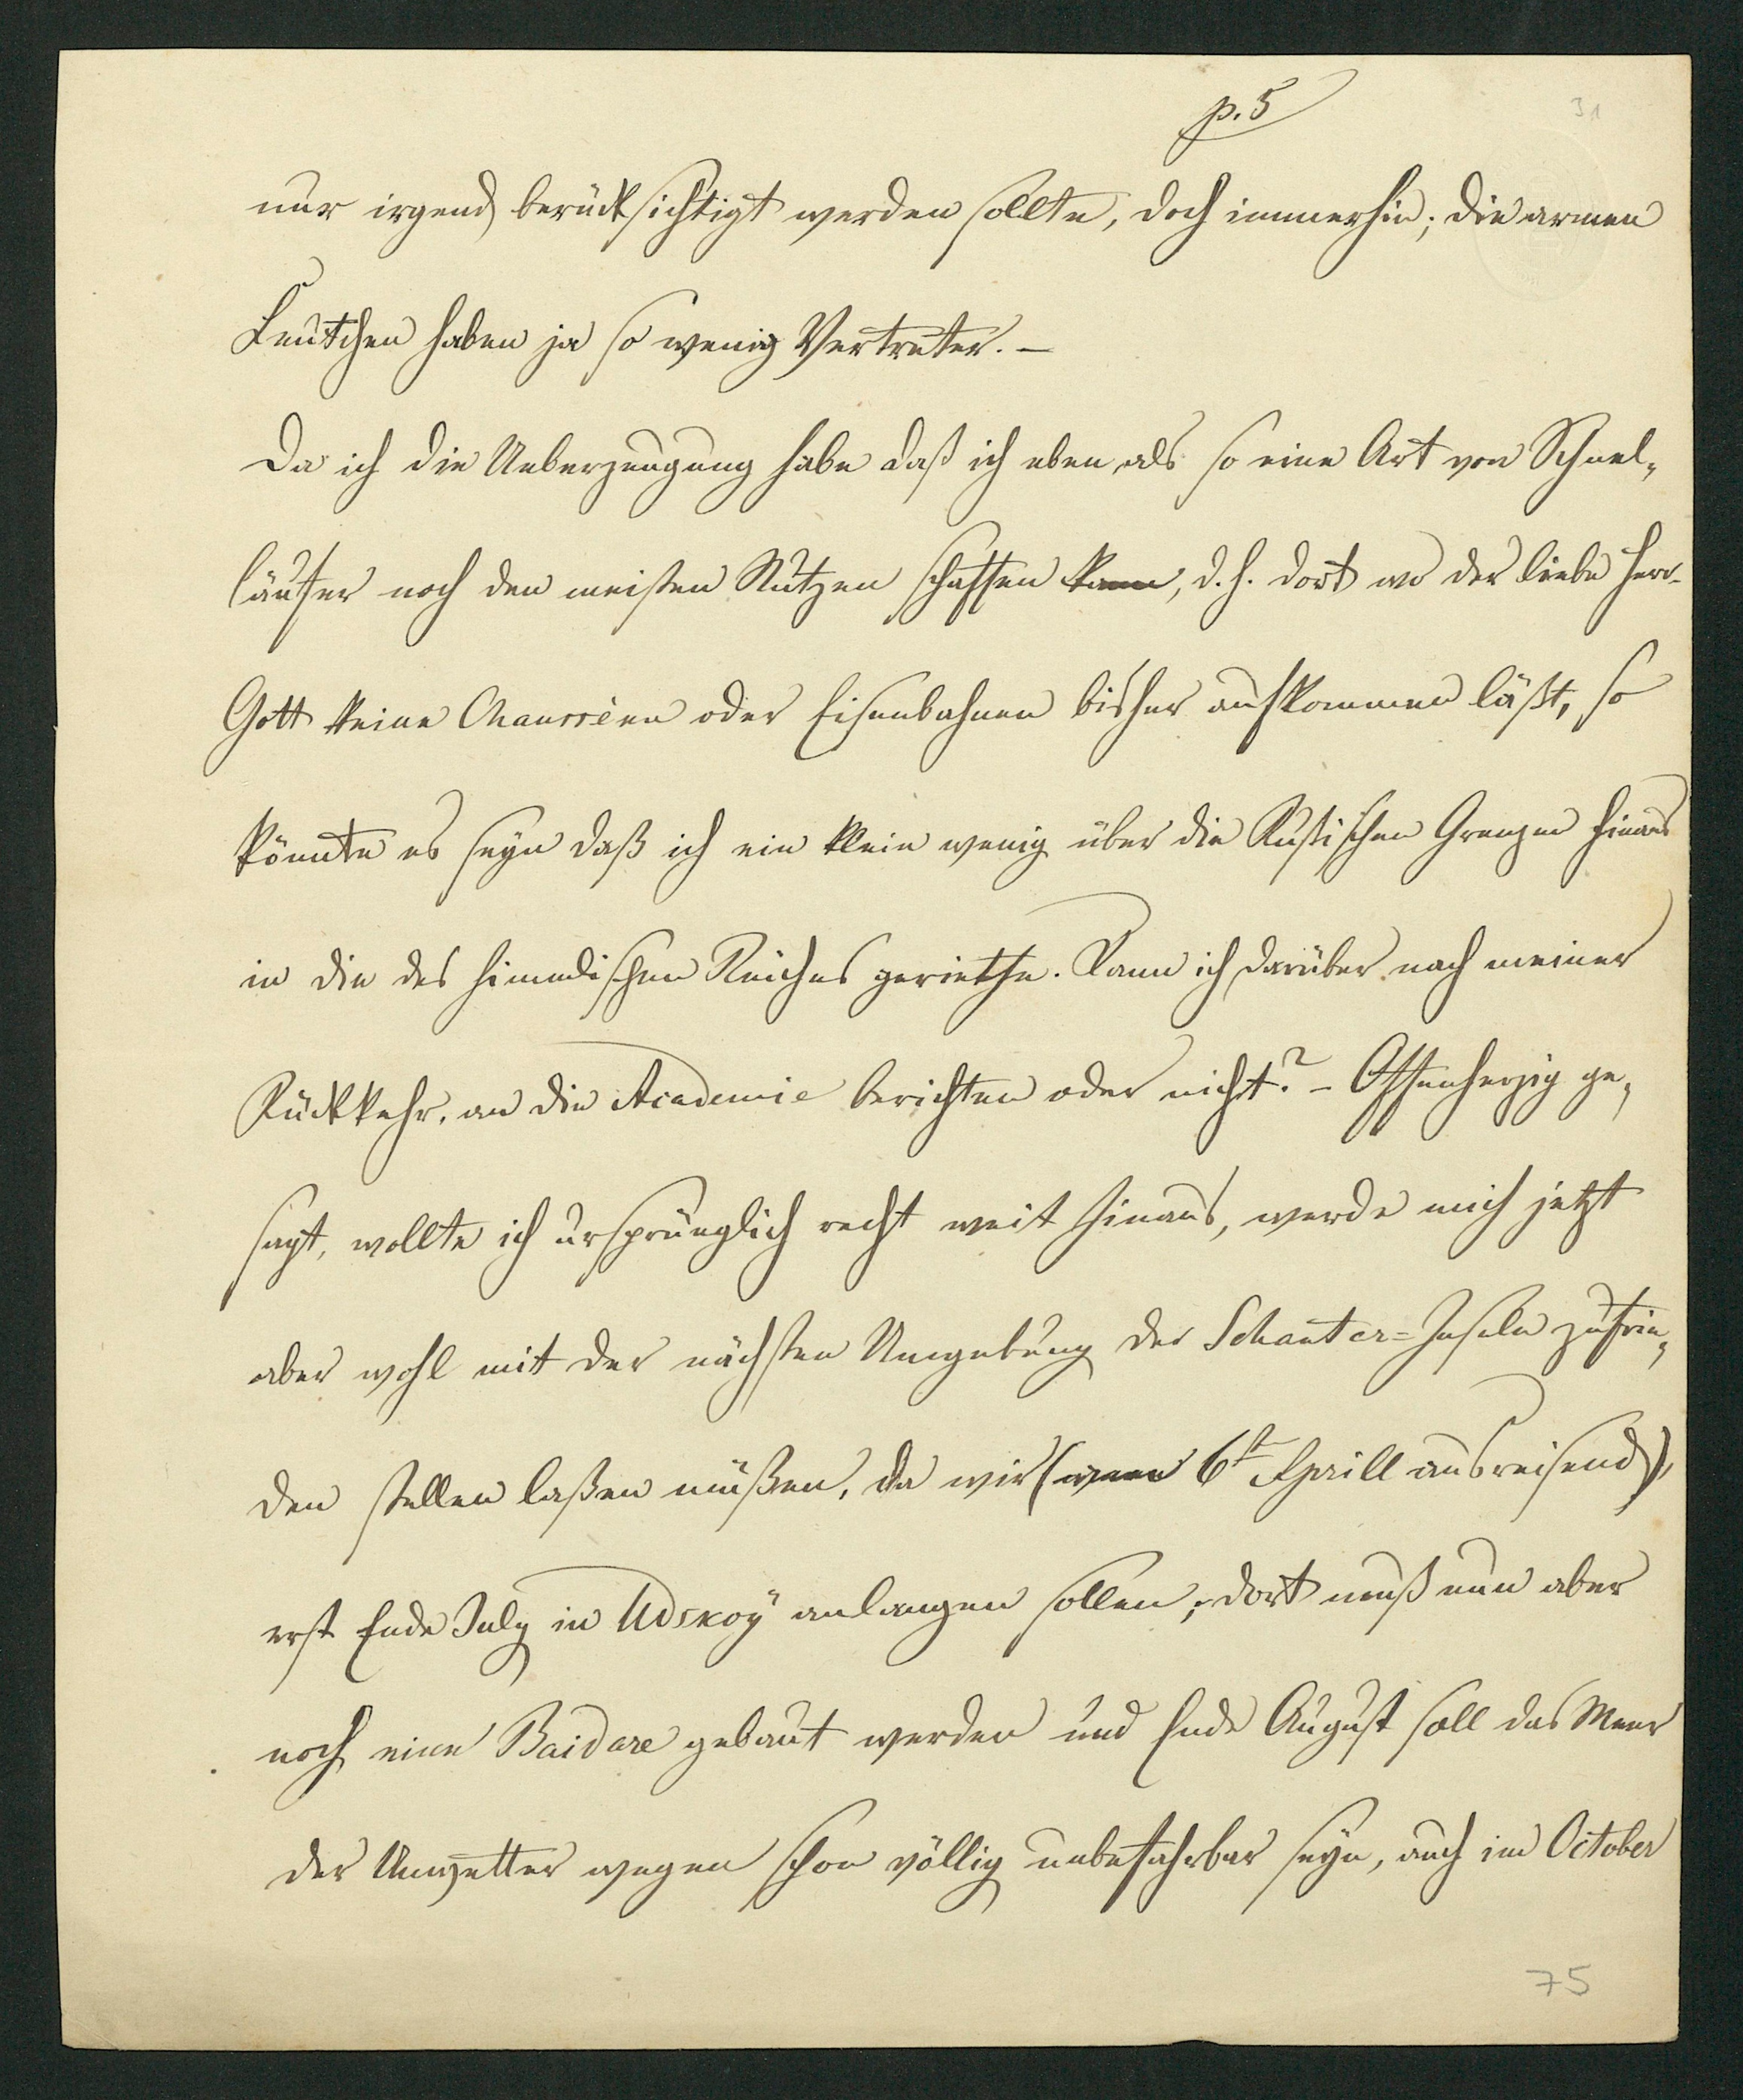 p. 5
31
nur irgend berücksichtigt werden sollte, doch immerhin; die armen
Leutchen haben ja so wenig Vertreter. —
Da ich die Ueberzeugung habe daß ich eben als so eine Art von Schnel-
läufer noch den meisten Nutzen schaffen kann, d. h. dort wo der liebe Herr-
Gott keine Chausséen oder Eisenbahnen bisher aufkommen läßt, so
könnte es seyn daß ich ein klein wenig über die Rußischen Grenzen hinaus
in die des himmlischen Reiches geriethe. Kann ich darüber nach meiner
Rückkehr, an die Academie berichten oder nicht? – Offenherzig ge-
sagt, wollte ich ursprünglich recht weit hinaus, werde mich jetzt
aber wohl mit der nächsten Umgebung der Schantar-Inseln zufrie-
den stellen laßen müßen, da wir (wenn 6t Aprill ausreisend),
erst Ende July in Udskoÿ anlangen sollen; dort muß nun aber
noch eine Baidare gebaut werden und Ende August soll das Meer
der Unwetter wegen schon völlig unbefahrbar seyn, auch im October
75